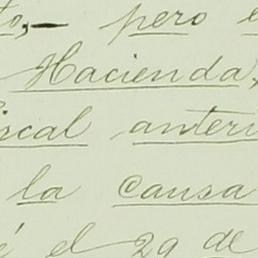 to,— pero e
Hacienda,
iscal anteri
la causa
é el 29 de